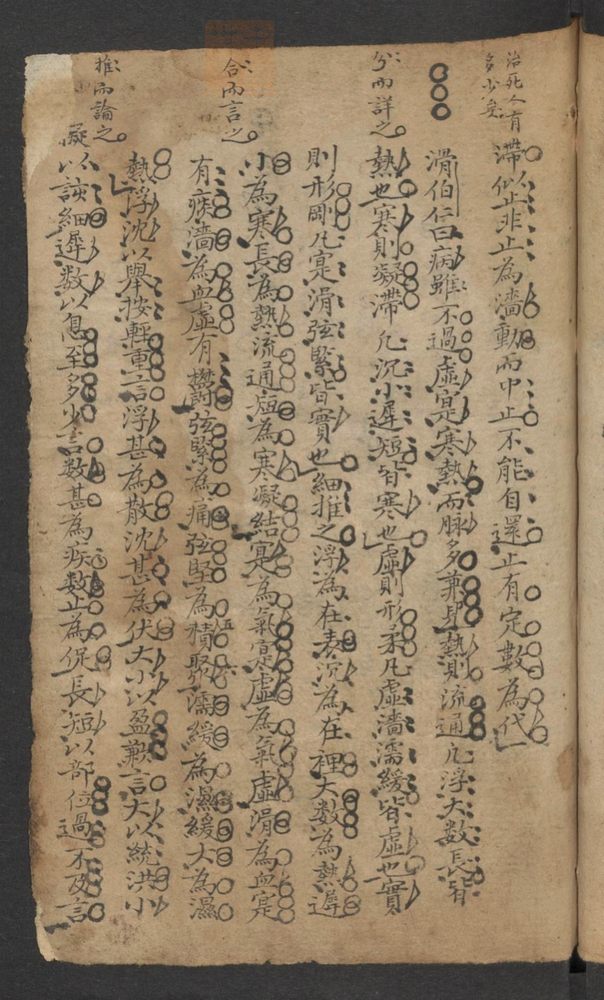 治死人有
多少矣
滯似止非止為濇動而中止不能自還止有定數為代
滑伯仁曰病雖不過虛寔寒熱而脉多兼見熱則流通凡浮大數長皆
分而詳之
熱也寒則凝滯凡沉小遲短皆寒也虛則形柔凡虛濇濡緩皆虛也實
則形剛凡寔滑弦緊皆實也細推之浮為在表沉為在裡大數為熱遲
合而言之
小為寒長為熱流通短為寒凝結寔為氣寔虛為氣虛滑為血寔
有痰濇為血虛有鬱弦緊為痛弦堅為積聚濡緩為濕緩大為濕
推而論之
熱浮沈以舉按輕重言浮甚為散沈甚為伏大小以盈歉言大以統洪小
以該細遲數以息至多少言數甚為疾數止為促長短以部位過不及言